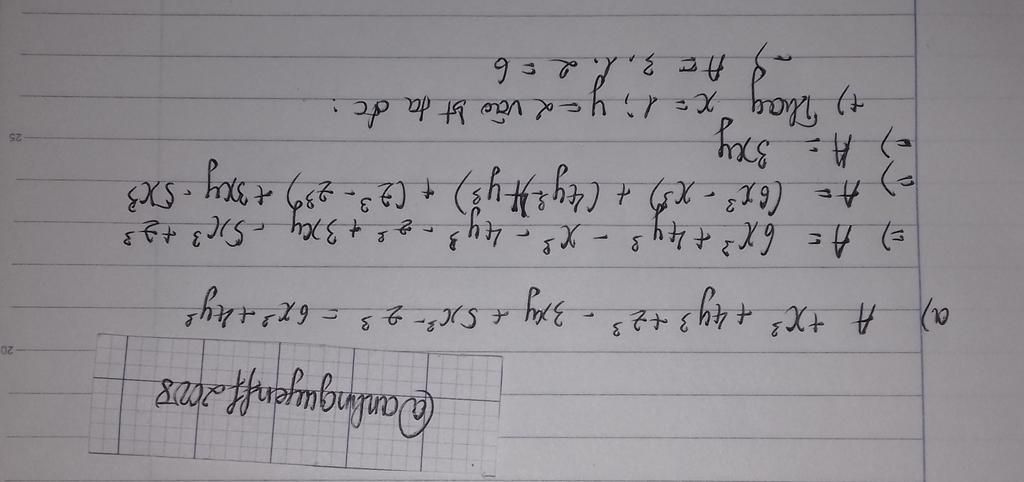 @anhnguyenff2008
a) A + x³ + 4y³ + z³ - 3xy + 5x³ - z³ = 6x³ + 4y³
=) A = 6x³ + 4y³ - x³ - 4y³ - z³ + 3xy - 5x³ + z³
=) A = (6x³ - x³) + (4y³ - 4y³) + (z³ - z³) + 3xy - 5x³
=) A = 3xy
+) Thay x = 1; y = 2 vào bt ta đc :
=) A = 3.1.2 = 6
20
25